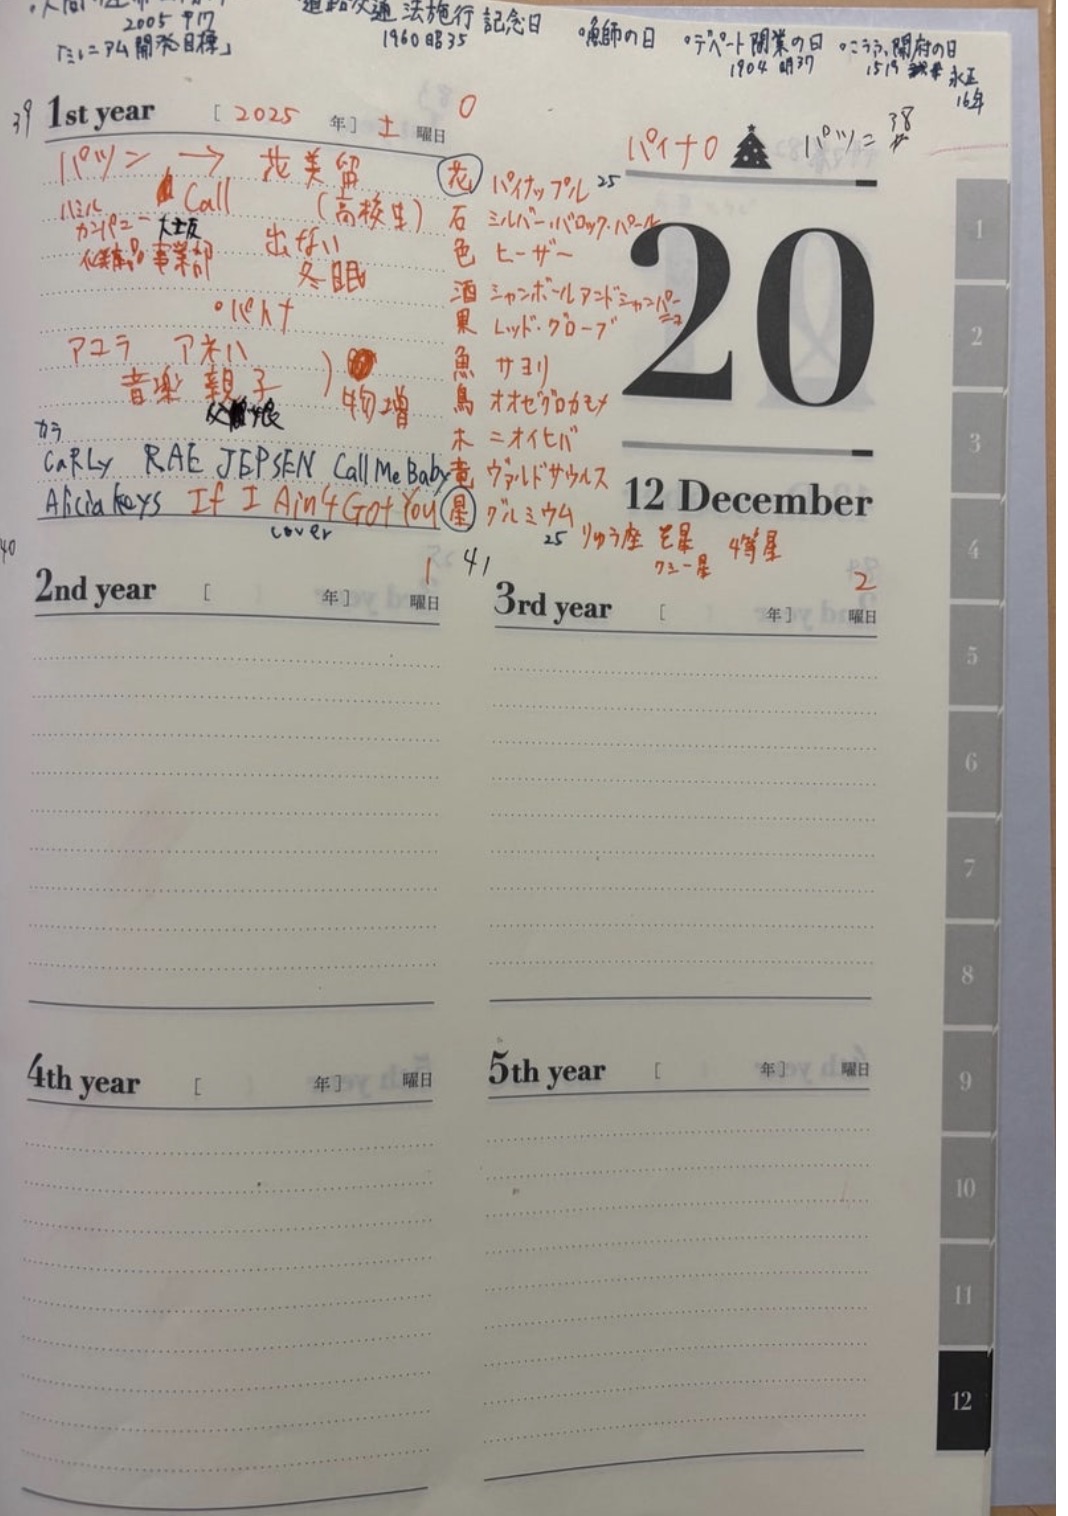 2005 平17
「ミレニアム開発目標」
道路交通法施行記念日
1960 昭35
°漁師の日
°デパート開業の日
1904 明37
開府の日
1519 永正
16年
39
1st year [ 2025 年] 土 曜日
0
パイナ0
パツニ
38
パツン → 花美留
Call (高校生)
ハミル
カンパニー 大土反
事業部
出ない
冬眠
°パトナ
アユラ アネハ
音楽 親子
物増
父 娘
カラ
CaRLy RAE JEPSEN Call Me Baby
Alicia Keys If I Ain4 Got You
cover
花 パイナップル 25
石 シルバー・バロック・パール
色 ヒーザー
酒 シャンボールアンドシャンパーニュ
果 レッド・グローブ
魚 サヨリ
鳥 オオセグロカモメ
木 ニオイヒバ
竜 ヴァルドサウルス
星 グルミウム
25 りゅう座 ξ星 4等星
クシー星
20
12 December
40
2nd year [ 年] 曜日
1
41
3rd year [ 年] 曜日
2
4th year [ 年] 曜日
5th year [ 年] 曜日
1
2
3
4
5
6
7
8
9
10
11
12